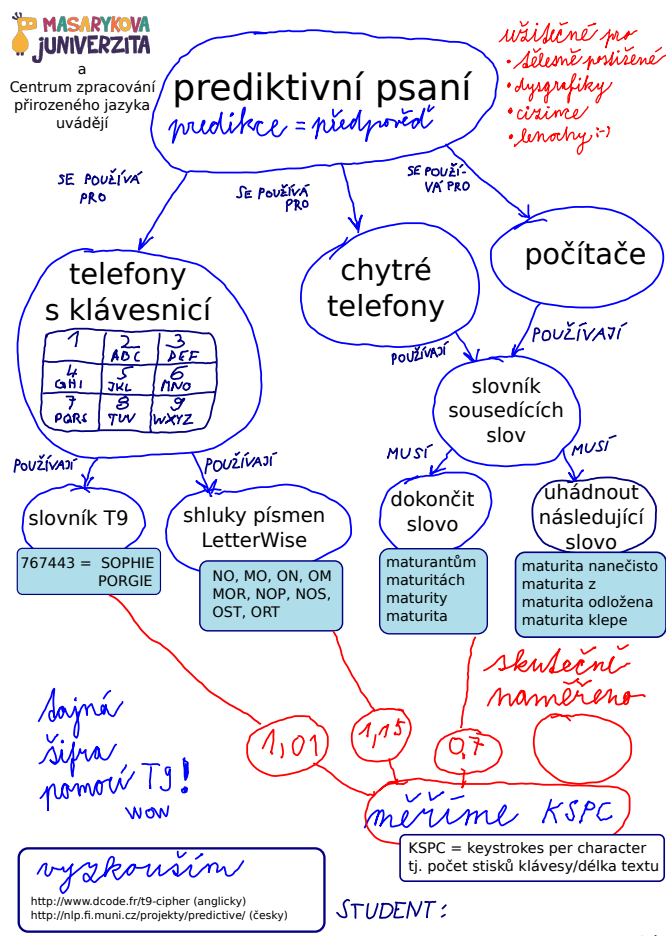 MASARYKOVA
jUNIVERZITA
a
Centrum zpracování
přirozeného jazyka
uvádějí
prediktivní psaní
predikce = předpověď
užitečné pro
• tělesně postižené
• dysgrafiky
• cizince
• lenochy :-)
SE POUŽÍVÁ
PRO
SE POUŽÍVÁ
PRO
SE POUŽÍ-
VÁ PRO
telefony
s klávesnicí
1 2 3
ABC DEF
4 5 6
GHI JKL MNO
7 8 9
PQRS TUV WXYZ
chytré
telefony
počítače
POUŽÍVAJÍ
POUŽÍVAJÍ
slovník
sousedících
slov
POUŽÍVAJÍ
POUŽÍVAJÍ
MUSÍ
MUSÍ
slovník T9
shluky písmen
LetterWise
dokončit
slovo
uhádnout
následující
slovo
767443 = SOPHIE
PORGIE
NO, MO, ON, OM
MOR, NOP, NOS,
OST, ORT
maturantům
maturitách
maturity
maturita
maturita nanečisto
maturita z
maturita odložena
maturita klepe
skutečně
naměřeno
tajná
šifra
pomocí T9!
WOW
1,01
1,15
0,7
měříme KSPC
KSPC = keystrokes per character
tj. počet stisků klávesy/délka textu
vyzkouším
http://www.dcode.fr/t9-cipher (anglicky)
http://nlp.fi.muni.cz/projekty/predictive/ (česky)
STUDENT: